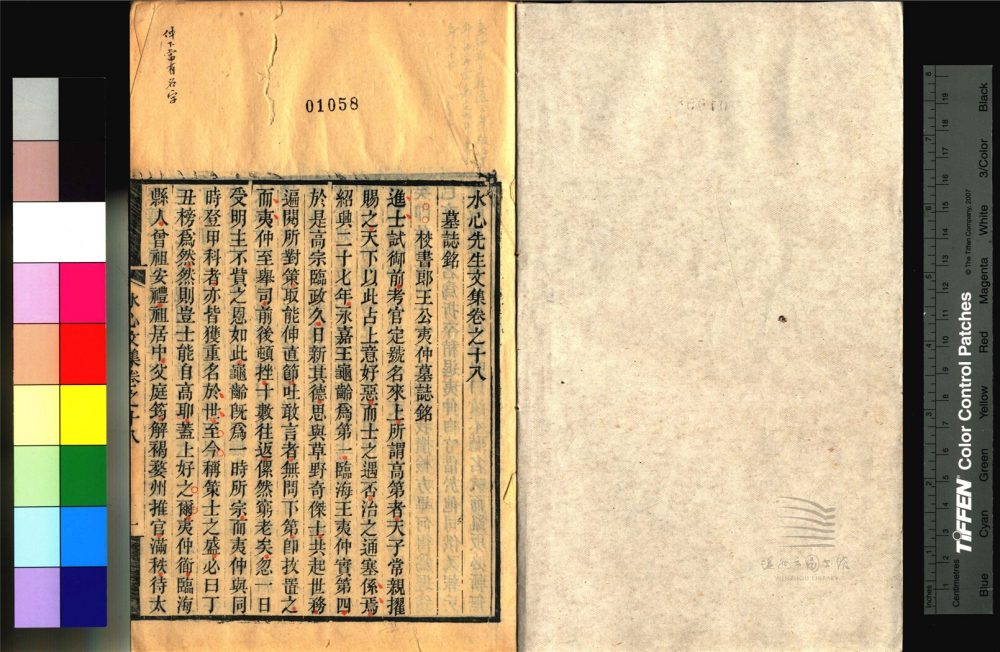 水心先生文集卷之十八
墓誌銘
校書郎王公夷仲墓誌銘
進士試御前考官定號名來上所謂高第者天子常親擢
賜之天下以此占上意好惡而士之遇否治之通塞係焉
紹興二十七年永嘉王龜齡爲第一臨海王夷仲實第四
於是高宗臨政久日新其德思與草野奇傑士共起世務
遍閱所對策取能伸直節吐敢言者無問下第卽拔置之
而夷仲至舉司前後頓挫十數往返傫然窮老矣忽一日
受明主不貲之恩如此龜齡旣爲一時所宗而夷仲與同
時登甲科者亦皆獲重名於世至今稱策士之盛必曰丁
丑榜爲然然則豈士能自高耶蓋上好之爾夷仲銜臨海
縣人曾祖安禮祖居中父庭筠解褐婺州推官滿秩待太
水心文集卷之十八
一
仲下當有名字
01058
温州市圖書館
WENZHOU LIBRARY
TIFFEN Color Control Patches
© The Tiffen Company, 2007
Inches
Centimetres
Blue
Cyan
Green
Yellow
Red
Magenta
White
3/Color
Black